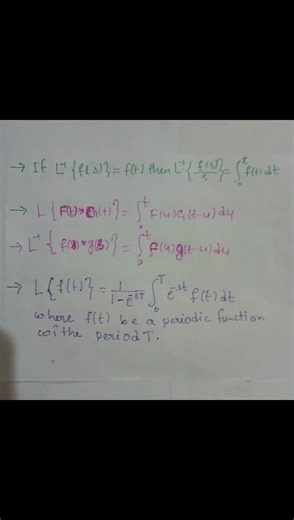 → If L⁻¹{f(s)} = f(t) then L⁻¹{f(s)/s} = ∫₀ᵗ f(t) dt
→ L{F(t)*G(t)} = ∫₀ᵗ F(u)G(t-u)du
→ L⁻¹{f(s)*g(s)} = ∫₀ᵗ F(u)g(t-u)du
→ L{f(t)} = 1/(1-e⁻ˢᵀ) ∫₀ᵀ e⁻ˢᵗ f(t) dt
where f(t) be a periodic function
with the period T.